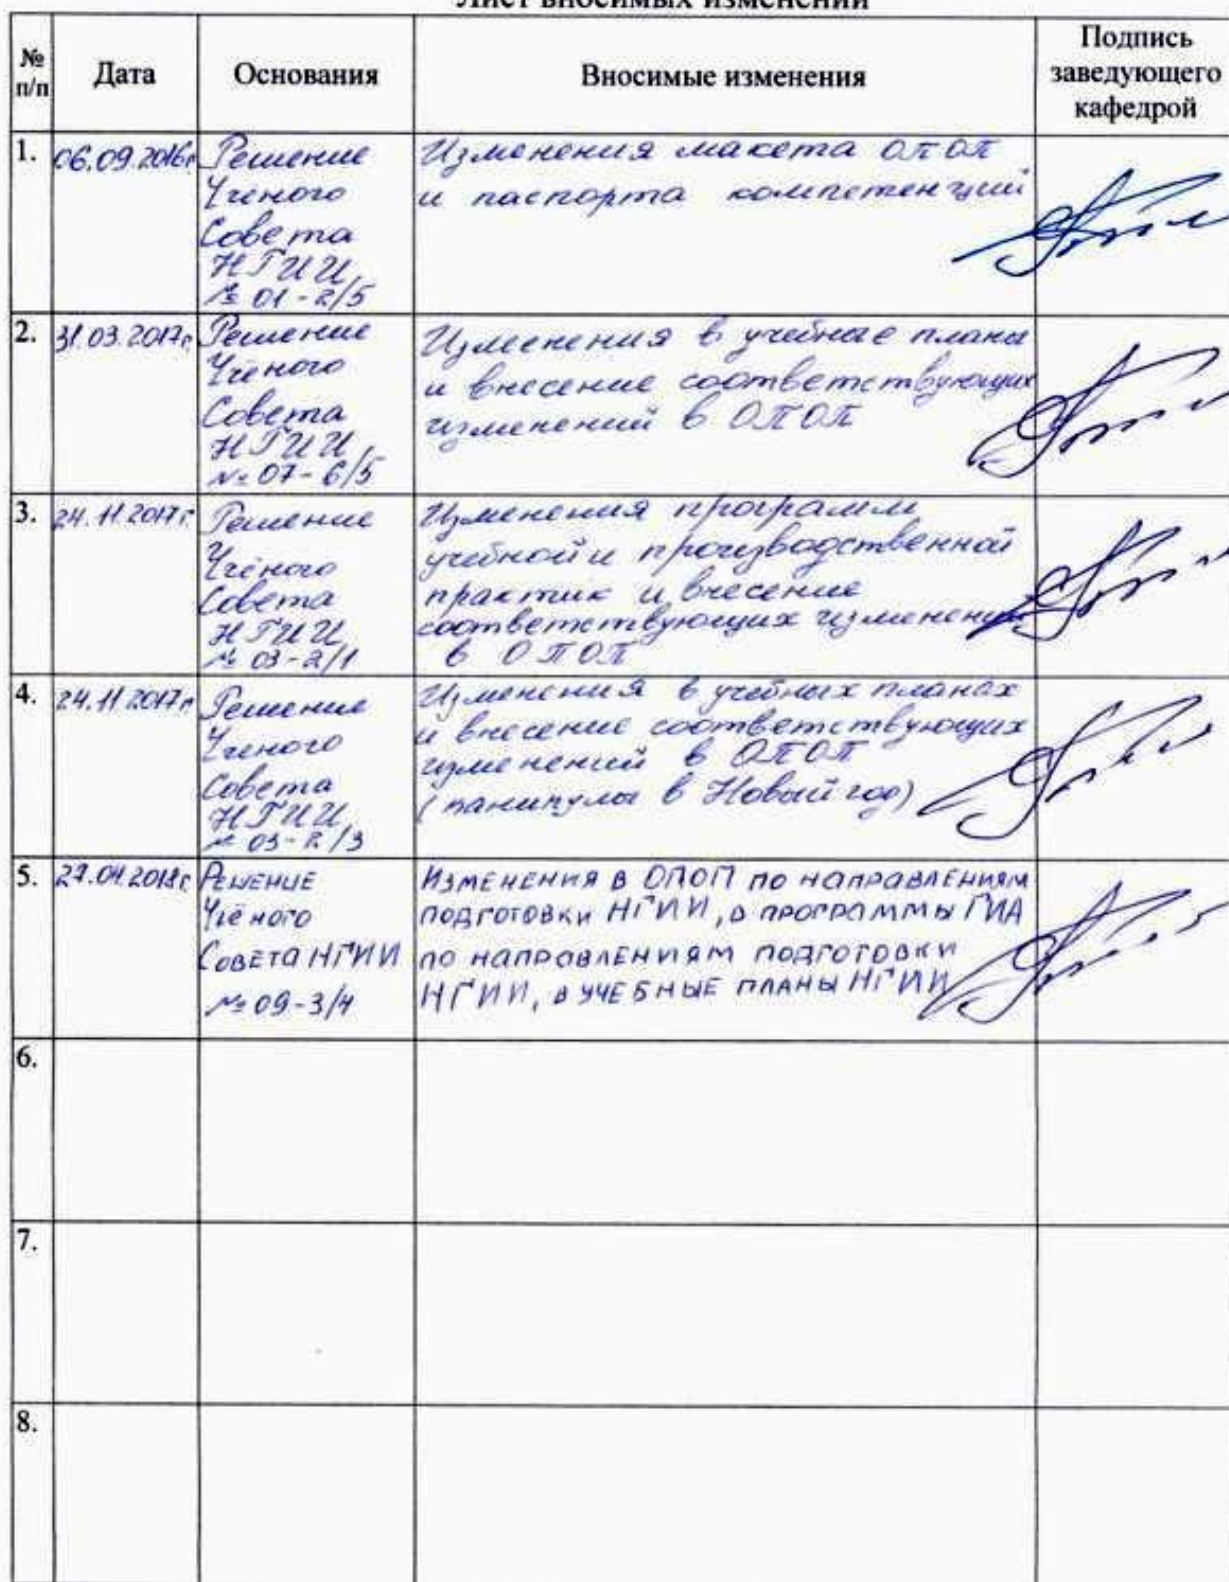 Лист вносимых изменений
№ п/п
Дата
Основания
Вносимые изменения
Подпись
заведующего
кафедрой
1.
06.09.2016г.
Решение
Ученого
Совета
НГИИ
№ 01-2/5
Изменения макета ОПОП
и паспорта компетенций
2.
31.03.2017г.
Решение
Учёного
Совета
НГИИ
№ 07-6/5
Изменения в учебные планы
и внесение соответствующих
изменений в ОПОП
3.
24.11.2017г.
Решение
Учёного
Совета
НГИИ
№ 03-2/1
Изменения программ
учебной и производственной
практик и внесение
соответствующих изменений
в ОПОП
4.
24.11.2017г.
Решение
Ученого
Совета
НГИИ
№ 03-2/3
Изменения в учебных планах
и внесение соответствующих
изменений в ОПОП
( в Новый год)
5.
27.04.2018г.
Решение
Учёного
Совета НГИИ
№ 09-3/4
Изменения в ОПОП по направлениям
подготовки НГИИ, в программы ГИА
по направлениям подготовки
НГИИ, в учебные планы НГИИ
6.
7.
8.